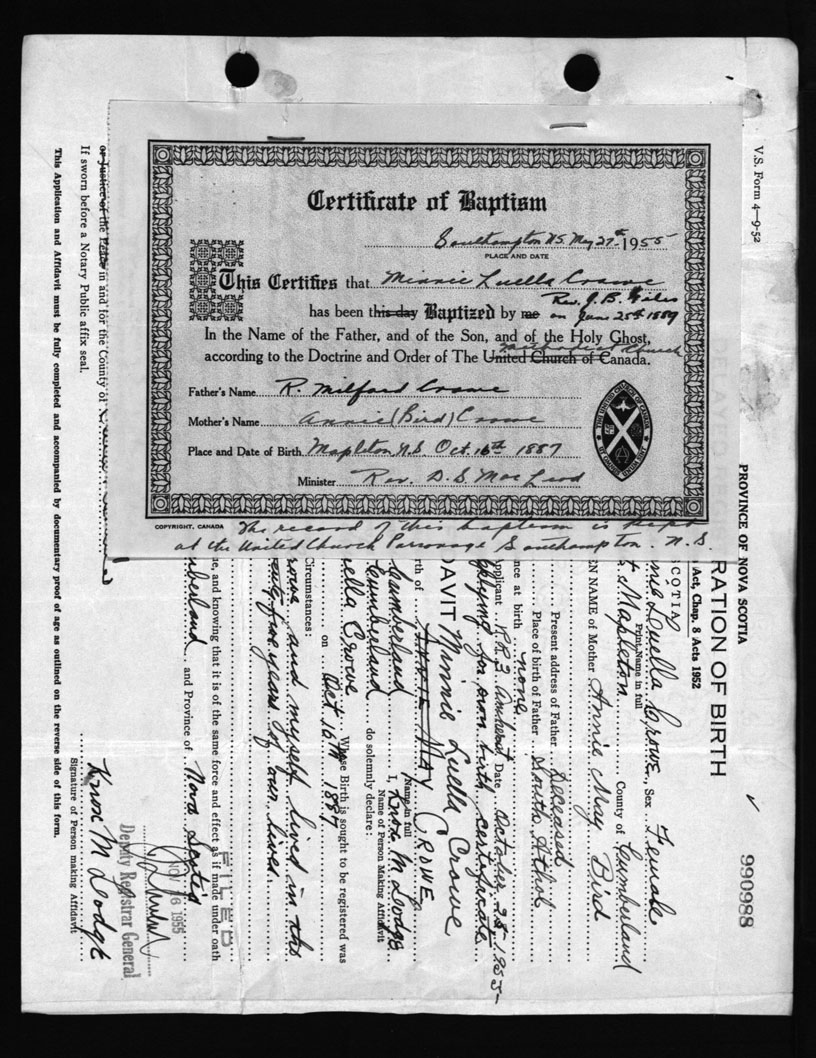 V.S. Form 4—9-52
Certificate of Baptism
Southampton N.S. May 27th 1955
PLACE AND DATE
This Certifies that Minnie Luella Crowe
Rev. J. B. Giles
has been this day Baptized by me on June 25th 1889
In the Name of the Father, and of the Son, and of the Holy Ghost,
Methodist Church
according to the Doctrine and Order of The United Church of Canada.
Father's Name R. Milford Crowe
Mother's Name Annie (Bird) Crowe
Place and Date of Birth Mapleton N.S. Oct. 16th 1887
Minister Rev. D. S. MacLeod
THE UNITED CHURCH OF CANADA
COPYRIGHT, CANADA
The record of this baptism is kept
at the United Church Parsonage Southampton. N.S.
990988
PROVINCE OF NOVA SCOTIA
Act, Chap. 8 Acts 1952
RATION OF BIRTH
COTIA
nie Luella Crowe, Sex Female
Print Name in full
t Mapleton County of Cumberland
EN NAME of Mother Annie May Bird
Present address of Father Deceased
Place of birth of Father South Athol
nce at birth none
pplicant R.R.3 Amherst Date October 28-1955-
pplying for own birth certificate
DAVIT Minnie Luella Crowe
rth of ANNIE MAY CROWE
Name in full
Cumberland I, Knox M Dodge
Name of Person Making Affidavit
Cumberland do solemnly declare:
uella Crowe Whose Birth is sought to be registered was
on Oct 16th 1887
Circumstances:
rowe and myself lived in the
enty five years of our lives.
ue, and knowing that it is of the same force and effect as if made under oath
mberland and Province of Nova Scotia
FILED
NOV 16 1955
Deputy Registrar General
Knox M Dodge
Signature of Person making Affidavit
or Justice of the Peace in and for the County of
If sworn before a Notary Public affix seal.
This Application and Affidavit must be fully completed and accompanied by documentary proof of age as outlined on the reverse side of this form.